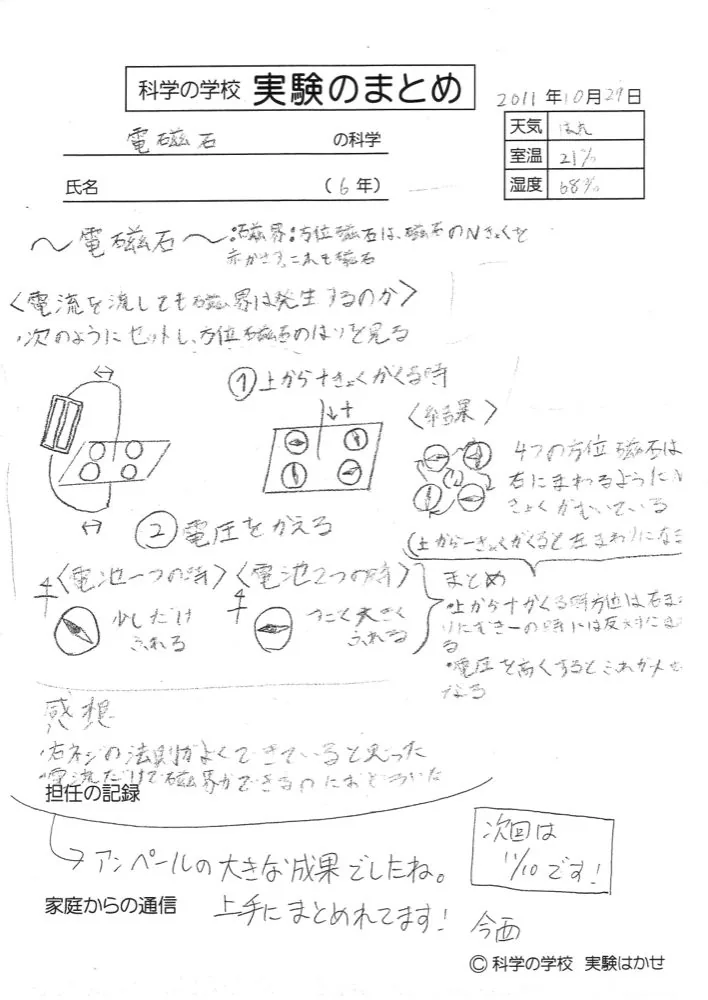 科学の学校 実験のまとめ
2011年10月29日
電磁石 の科学
天気 はれ
氏名 (6年)
室温 21%
湿度 68%
~電磁石~
:磁界:方位磁石は、磁石のNきょくを
赤がさす。これも磁石
〈電流を流しても磁界は発生するのか〉
・次のようにセットし、方位磁石のはりを見る
①上から+きょくがくる時
+
〈結果〉
4つの方位磁石は
右にまわるようにN
きょくがむいている
(上から-きょくがくると左まわりになる
②電圧をかえる
〈電池一つの時〉
少しだけ
ふれる
〈電池2つの時〉
すごく大きく
ふれる
まとめ
・上から+がくる時方位は右まわ
りにむき-の時には反対にまわ
る
・電圧を高くするとふれが大きく
なる
感想
・右ネジの法則がよくできていると思った
・電流だけで磁界ができるのにおどろいた
担任の記録
→アンペールの大きな成果でしたね。
上手にまとめれてます!
次回は
11/10です!
家庭からの通信
今西
© 科学の学校 実験はかせ